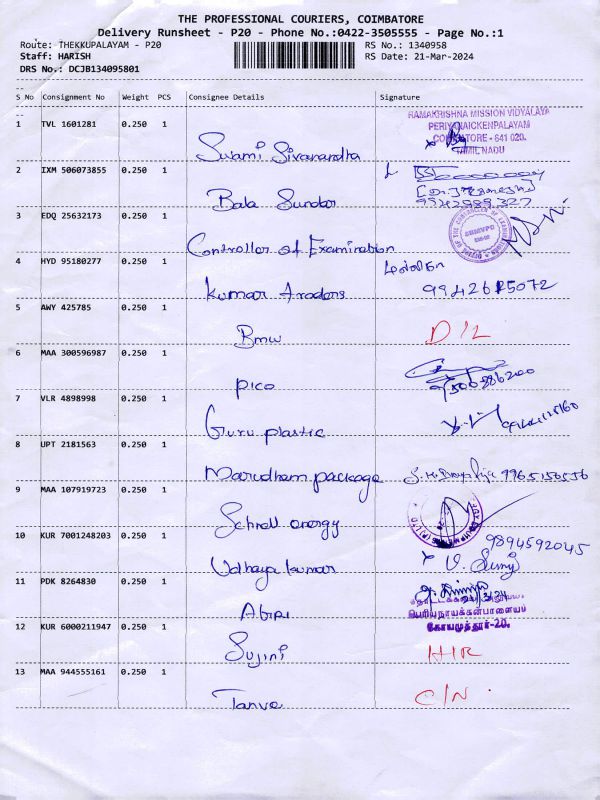 THE PROFESSIONAL COURIERS, COIMBATORE
Delivery Runsheet - P20 - Phone No.:0422-3505555 - Page No.:1
Route: THEKKUPALAYAM - P20 RS No.: 1340958
Staff: HARISH RS Date: 21-Mar-2024
DRS No.: DCJB134095801
S No Consignment No Weight PCS Consignee Details Signature
1 TVL 1601281 0.250 1
RAMAKRISHNA MISSION VIDYALAYA
PERIYANAICKENPALAYAM
COIMBATORE - 641 020.
TAMIL NADU
Swami Sivanandha
2 IXM 506073855 0.250 1
Bala Sundar
9942989327
3 EDQ 25632173 0.250 1
Controller of Examination
OFFICE OF THE CONTROLLER OF EXAMINATIONS
4 HYD 95180277 0.250 1
Kumar Traders
5 AWY 425785 0.250 1
Bmw D/L
6 MAA 300596987 0.250 1
Pico
7 VLR 4898998 0.250 1
Guru plastic
8 UPT 2181563 0.250 1
Marudham package
9 MAA 107919723 0.250 1
Schnell energy
10 KUR 7001248203 0.250 1
9894592045
Udhaya kumar
11 PDK 8264830 0.250 1
Abipi
பெரியநாயக்கன்பாளையம்
கோயமுத்தூர்-20.
12 KUR 6000211947 0.250 1
Sujini HIR
13 MAA 944555161 0.250 1
Tanve C/N